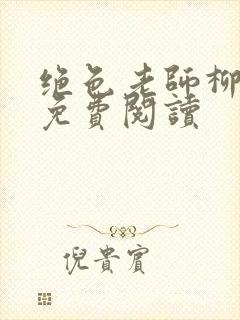 绝色老师柳
免費閱讀
倪貴賓